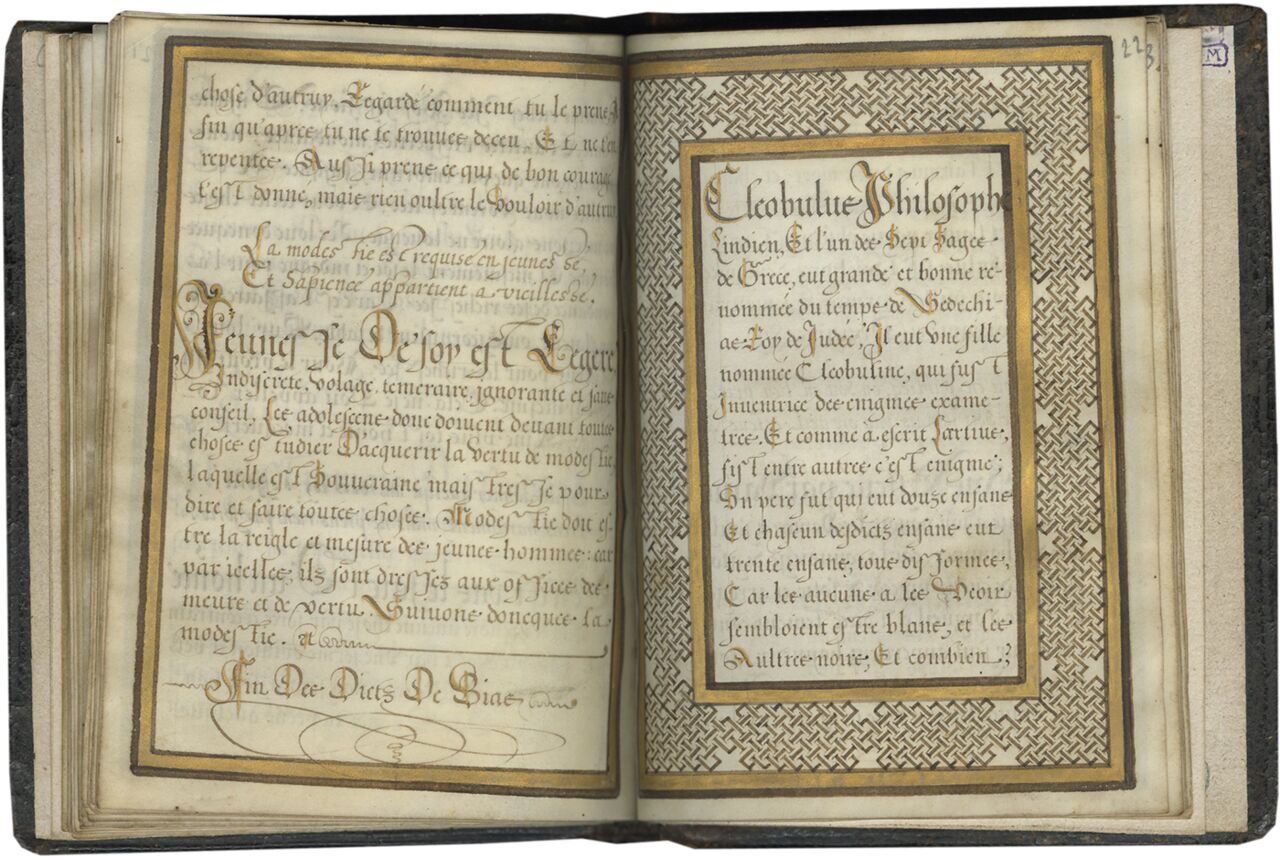 chose d'autruy, Regarde comment tu le prens A-
fin qu'apres tu ne te trouves deceu, Et ne t'en
repentes. Aussi prens ce qui de bon courage
t'est donné, mais rien oultre le Vouloir d'autruy
La modestie est requise en jeunesse,
Et Sapience appartient à vieillesse.
Jeunesse De soy est Legere
Indiscrete, volage, temeraire, ignorante et sans
conseil, Les adolescens donc doivent devant toutes
choses estudier D'acquerir la Vertu de modestie,
laquelle est Souveraine maistresse pour
dire et faire toutes choses. Modestie doit es-
tre la reigle et mesure des jeunes hommes: car
par icelles, ils sont dressez aux offices des
meurs et de vertu, Suivons doncques la
modestie.
Fin Des Dictz De Bias
223
M
Cleobulus Philosophe
Lindien, Et l'un des Sept Sages
de Grece, eut grande et bonne re-
nommée du temps de Sedechi-
as Roy de Judée, Il eut Vne fille
nommée Cleobuline, qui fust
Inventrice des enigmes exame-
tres. Et comme a escrit Lartius,
fist entre autres c'est enigme;
Vn pere fut qui eut douze enfans
Et chascun desdicts enfans eut
trente enfans, tous difformes,
Car les aucuns a les Veoir
sembloient estre blans, et les
Aultres noirs, Et combien